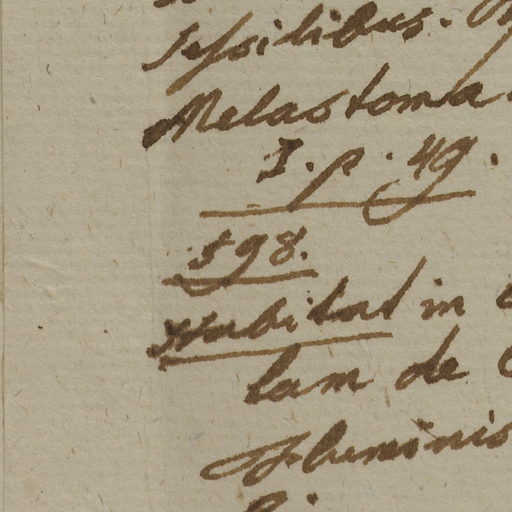 sessilibus.
Melastoma
I. p. 49.
598.
Habitat in
lam de
Fluminis